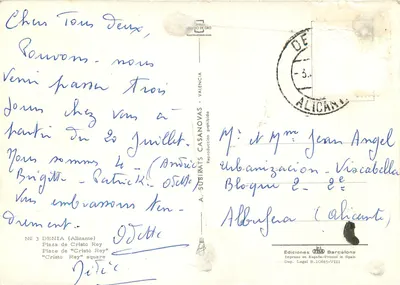 Chers Tous Deux,
Pouvons-nous
venir passer trois
jours chez vous à
partir du 20 Juillet.
Nous sommes 4 (André
Brigitte - Patrick - Odette
Vous embrassons ten-
drement.
Odette
No 3 DENIA (Alicante)
Plaza de Cristo Rey
Place de "Cristo Rey"
"Cristo Rey" square
A. SUBIRATS CASANOVAS - VALENCIA
DE
- 3.
ALICANT
Mr et Mme Jean Angel
Urbanizacion - Viscabella
Bloque 2 - 2e
Albufera (Alicante)
Ediciones Barcelona